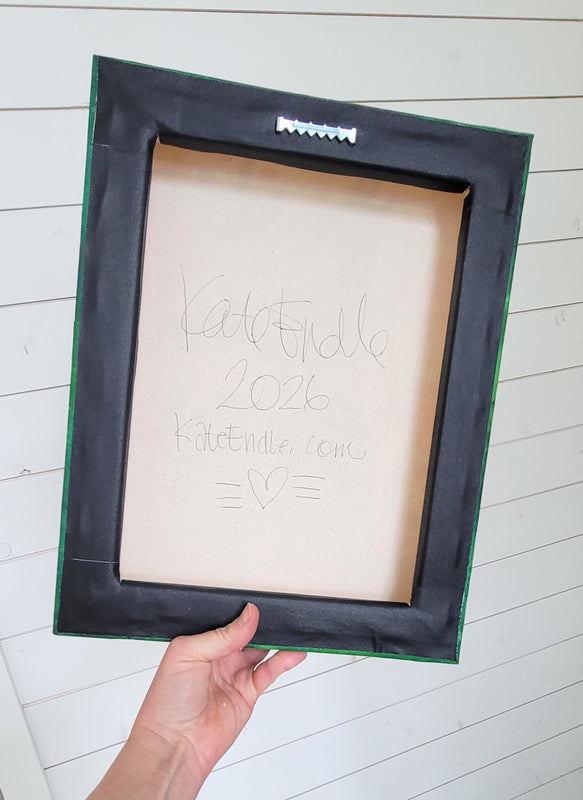 Kate Endle
2026
KateEndle.com